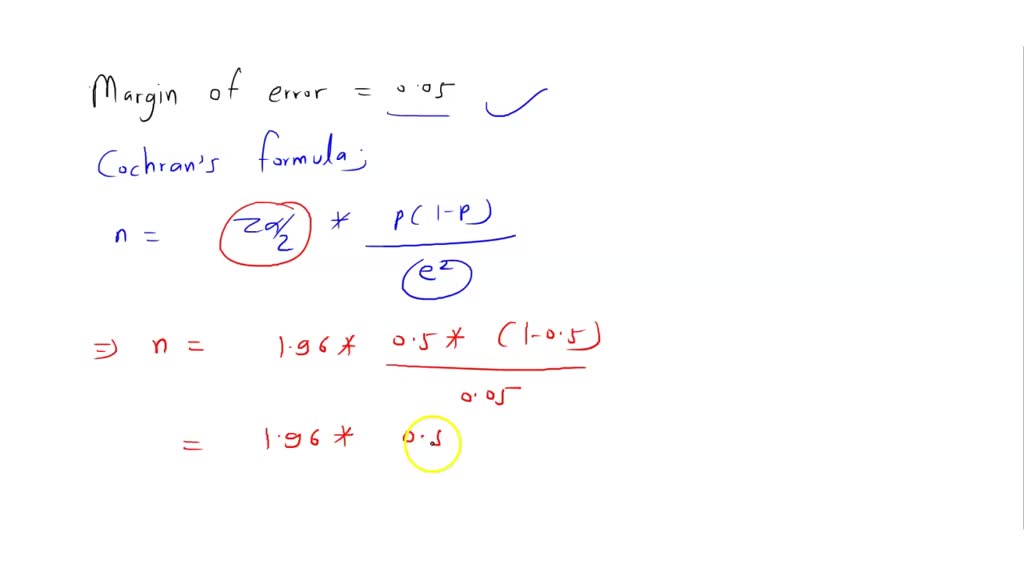 Margin of error = 0.05
Cochran's formula;
n = Zα/2 * p(1-p)
e²
⇒ n = 1.96 * 0.5 * (1-0.5)
0.05
= 1.96 * 0.5